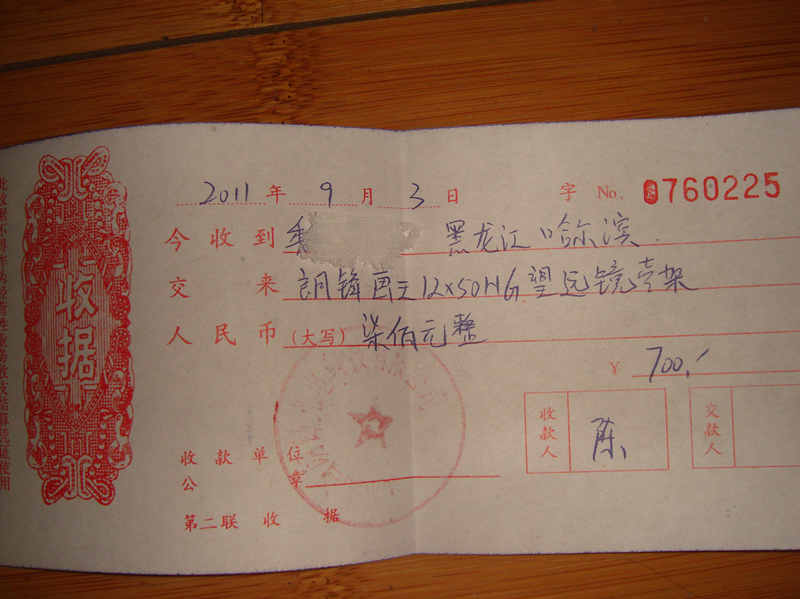 收据
2011年9月3日 字 No. 0760225
今收到 黑龙江 哈尔滨
交来 朗锋画王12×50HG望远镜壹架
人民币(大写)柒佰元整
¥ 700.-
收款人 陈 交款人
收款单位
公章
第二联 收据